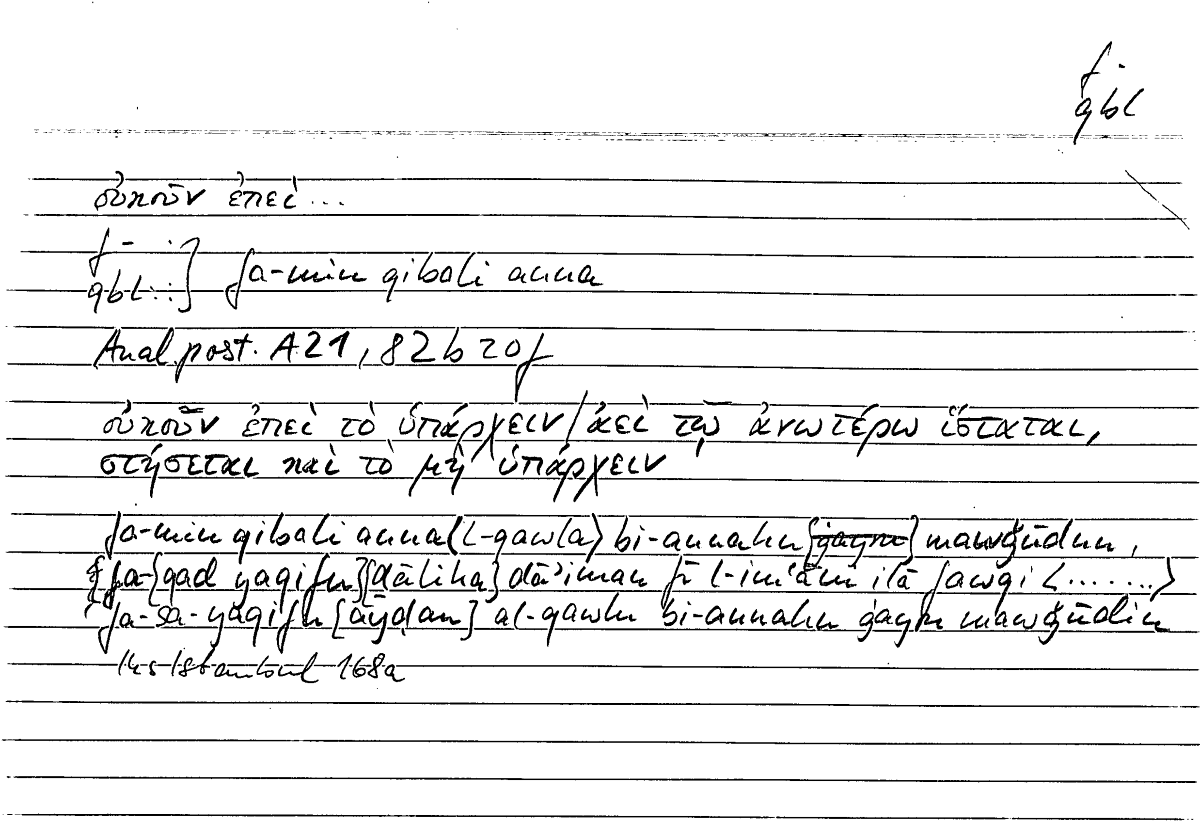 f -
qbl
οὐκοῦν ἐπεὶ ...
f - .
qbl : : } fa-min qibali anna
Anal. post. A21, 82b20f
οὐκοῦν ἐπεὶ τὸ ὑπάρχειν / ἀεὶ τῷ ἀνωτέρω ἵσταται,
στήσεται καὶ τὸ μὴ ὑπάρχειν
fa-min qibali anna ⟨l-qawla⟩ bi-annahu [ġayru] mawǧūdun,
fa-{qad yaqifu}[ḏālika] dāʾiman fī l-imʿāni ilā fawqi l.......⟩
fa-sa-yaqifu [ayḍan] al-qawlu bi-annahu ġayru mawǧūdin
Hs Istanbul 168a